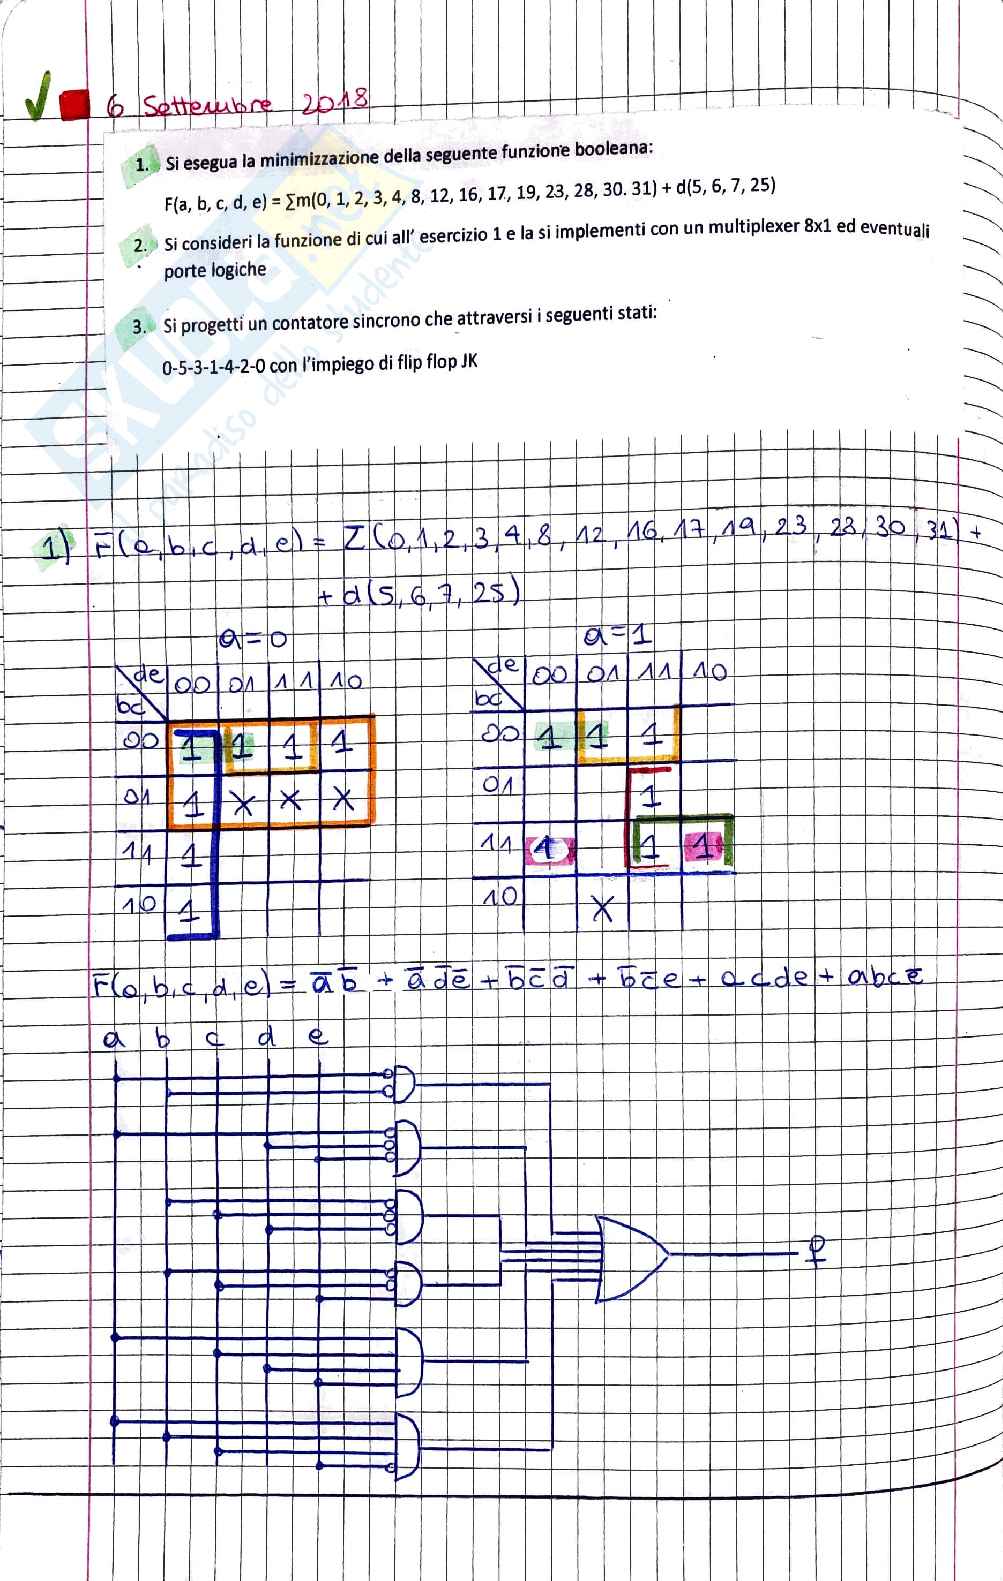 6 Settembre 2018
1. Si esegua la minimizzazione della seguente funzione booleana:
F(a, b, c, d, e) = ∑m(0, 1, 2, 3, 4, 8, 12, 16, 17, 19, 23, 28, 30. 31) + d(5, 6, 7, 25)
2. Si consideri la funzione di cui all' esercizio 1 e la si implementi con un multiplexer 8x1 ed eventuali
porte logiche
3. Si progetti un contatore sincrono che attraversi i seguenti stati:
0-5-3-1-4-2-0 con l'impiego di flip flop JK
SKUOLA.net
il paradiso dello studente
1) F(a,b,c,d,e) = Σ(0,1,2,3,4,8,12,16,17,19,23,28,30,31) +
+ d(5,6,7,25)
a=0
de 00 01 11 10
bc
00 1 1 1 1
01 1 X X X
11 1
10 1
a=1
de 00 01 11 10
bc
00 1 1 1
01 1
11 1 1 1
10 X
F(a,b,c,d,e) = a̅b̅ + a̅d̅e̅ + b̅c̅d̅ + b̅c̅e + acde + abce̅
a b c d e
f